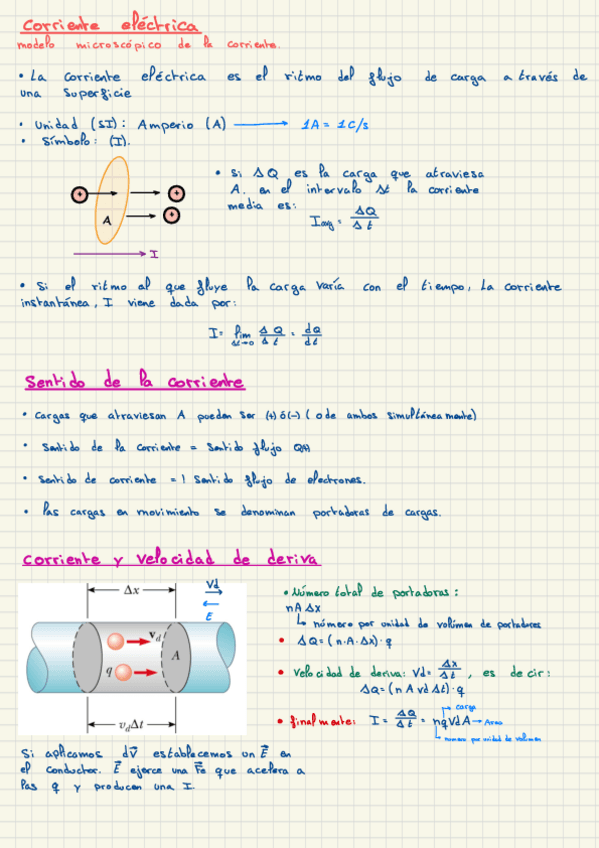 Corriente eléctrica
modelo microscópico de la corriente.
• La corriente eléctrica es el ritmo del flujo de carga a través de
una superficie
• Unidad (SI): Amperio (A) → 1A = 1C/s
• Símbolo: (I).
• Si ΔQ es la carga que atraviesa
A. en el intervalo Δt la corriente
media es:
I avg = ΔQ/Δt
A
I
• Si el ritmo al que fluye la carga varía con el tiempo, la corriente
instantánea, I viene dada por:
I = lim Δt→0 ΔQ/Δt = dQ/dt
Sentido de la corriente
• Cargas que atraviesan A pueden ser (+) ó (-) ( o de ambos simultáneamente)
• Sentido de la corriente = sentido flujo Q(+)
• Sentido de corriente = ! sentido flujo de electrones.
• Las cargas en movimiento se denominan portadoras de cargas.
Corriente y velocidad de deriva
Δx
Vd
E
v_d
A
q
v_dΔt
• Número total de portadoras:
nAΔx
↳ número por unidad de volúmen de portadores
• ΔQ = (n·A·Δx)·q
• Velocidad de deriva: Vd = Δx/Δt, es decir:
ΔQ = (n A vd Δt)·q
• finalmente: I = ΔQ/Δt = nqVdA → Area
carga
numero por unidad de volúmen
Si aplicamos dV establecemos un E⃗ en
el conductor. E⃗ ejerce una F⃗e que acelera a
las q y producen una I.